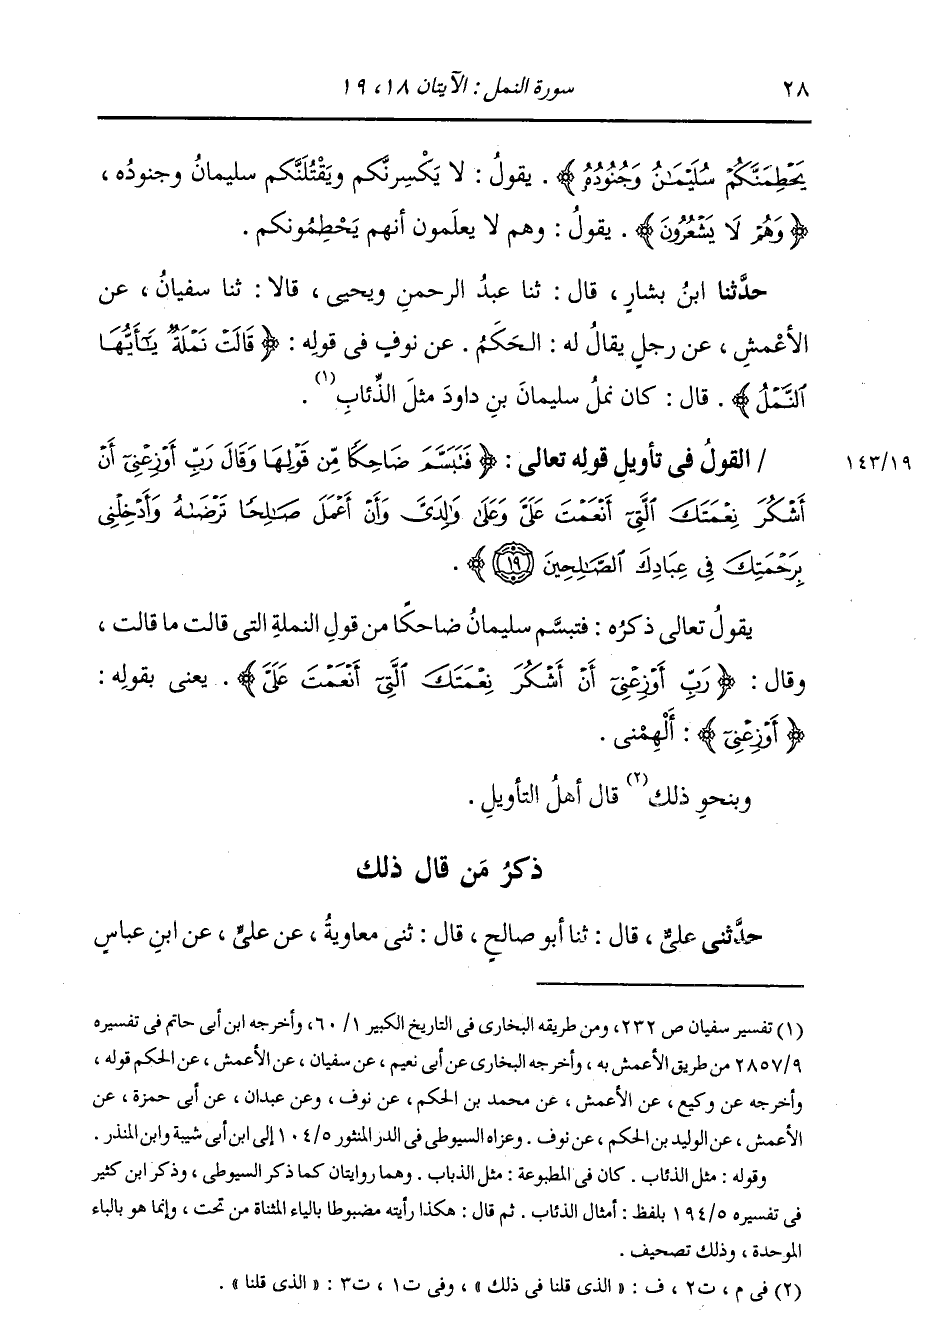 ٢٨ سورة النمل : الآيتان ١٨، ١٩
يَحْطِمَنَّكُمْ سُلَيْمَٰنُ وَجُنُودُهُ ﴾ . يقولُ : لا يَكْسِرنَّكم ويَقْتُلَنَّكم سليمانُ وجنودُه ،
﴿ وَهُمْ لَا يَشْعُرُونَ ﴾ . يقولُ : وهم لا يعلَمون أنهم يَحْطِمُونكم .
حدَّثنا ابنُ بشارٍ ، قال : ثنا عبدُ الرحمنِ ويحيى ، قالا : ثنا سفيانُ ، عن
الأعْمشِ ، عن رجلٍ يقالُ له : الحَكَمُ . عن نوفٍ فى قولِه : ﴿ قَالَتْ نَمْلَةٌ يَٰٓأَيُّهَا
ٱلنَّمْلُ ﴾ . قال : كان نملُ سليمانَ بنِ داودَ مثلَ الذِّئابِ (١) .
١٤٣/١٩ / القولُ فى تأويلِ قولِه تعالى : ﴿ فَتَبَسَّمَ ضَاحِكًا مِّن قَوْلِهَا وَقَالَ رَبِّ أَوْزِعْنِىٓ أَنْ
أَشْكُرَ نِعْمَتَكَ ٱلَّتِىٓ أَنْعَمْتَ عَلَىَّ وَعَلَىٰ وَٰلِدَىَّ وَأَنْ أَعْمَلَ صَٰلِحًا تَرْضَىٰهُ وَأَدْخِلْنِى
بِرَحْمَتِكَ فِى عِبَادِكَ ٱلصَّٰلِحِينَ ١٩ ﴾ .
يقولُ تعالى ذكرُه : فتبسَّم سليمانُ ضاحكًا من قولِ النملةِ التى قالت ما قالت ،
وقال : ﴿ رَبِّ أَوْزِعْنِىٓ أَنْ أَشْكُرَ نِعْمَتَكَ ٱلَّتِىٓ أَنْعَمْتَ عَلَىَّ ﴾ . يعنى بقولِه :
﴿ أَوْزِعْنِىٓ ﴾ : أَلْهِمْنى .
وبنحوِ ذلك (٢) قال أهلُ التأويلِ .
ذكرُ مَن قال ذلك
حدَّثنى علىٌّ ، قال : ثنا أبو صالحٍ ، قال : ثنى معاويةُ ، عن علىٍّ ، عن ابنِ عباسٍ
(١) تفسير سفيان ص ٢٣٢، ومن طريقه البخارى فى التاريخ الكبير ١/ ٦٠، وأخرجه ابن أبى حاتم فى تفسيره
٢٨٥٧/٩ من طريق الأعمش به ، وأخرجه البخارى عن أبى نعيم ، عن سفيان ، عن الأعمش ، عن الحكم قوله ،
وأخرجه عن وكيع ، عن الأعمش ، عن محمد بن الحكم ، عن نوف ، وعن عبدان ، عن أبى حمزة ، عن
الأعمش ، عن الوليد بن الحكم ، عن نوف . وعزاه السيوطى فى الدر المنثور ١٠٤/٥ إلى ابن أبى شيبة وابن المنذر .
وقوله : مثل الذئاب . كان فى المطبوعة : مثل الذباب . وهما روايتان كما ذكر السيوطى ، وذكر ابن كثير
فى تفسيره ١٩٤/٥ بلفظ : أمثال الذئاب . ثم قال : هكذا رأيته مضبوطا بالياء المثناة من تحت ، وإنما هو بالباء
الموحدة ، وذلك تصحيف .
(٢) فى م ، ت٢ ، ف : « الذى قلنا فى ذلك » ، وفى ت١ ، ت٣ : « الذى قلنا » .